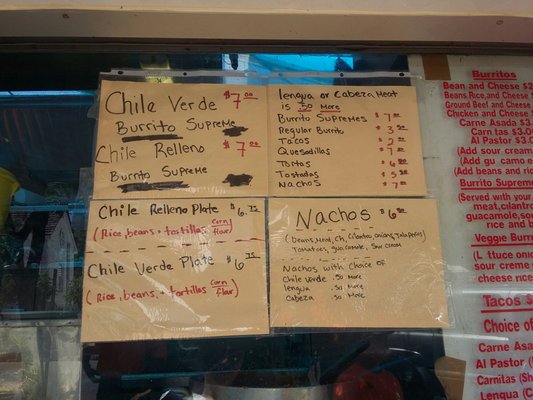 Chile Verde $7.00
Burrito Supreme
Chile Relleno $7.00
Burrito Supreme
lengua or Cabeza Meat
is .50 More
Burrito Supremes $7.00
Regular Burrito $3.50
Tacos $2
Quesadillas $7.00
Tortas $6.00
Tostadas $5.00
Nachos $7.00
Chile Relleno Plate $6.75
(Rice, beans, + tortillas Corn/flour)
Chile Verde Plate $6.75
(Rice, beans, + tortillas Corn/flour)
Nachos $6.00
(Beans, Meat, Ch, Cilantro, onions, Jalapeños)
Tomatoes, guacamole, sour cream
Nachos with choice of
Chile Verde .50 More
lengua .50 More
Cabeza .50 More
Burritos
Bean and Cheese $2
Beans, Rice, and Cheese
Ground Beef and Cheese
Chicken and Cheese $
Carne Asada $3.
Carnitas $3.0
Al Pastor $3.0
(Add sour cream
(Add gu camo e
(Add beans and ri
Burrito Supreme
(Served with your
meat, cilantro
guacamole, sou
rice and
Veggie Burri
(L ttuce oni
sour creme
cheese rice
Tacos $
Choice of
Carne Asa
Al Pastor (
Carnitas (Sh
Lengua